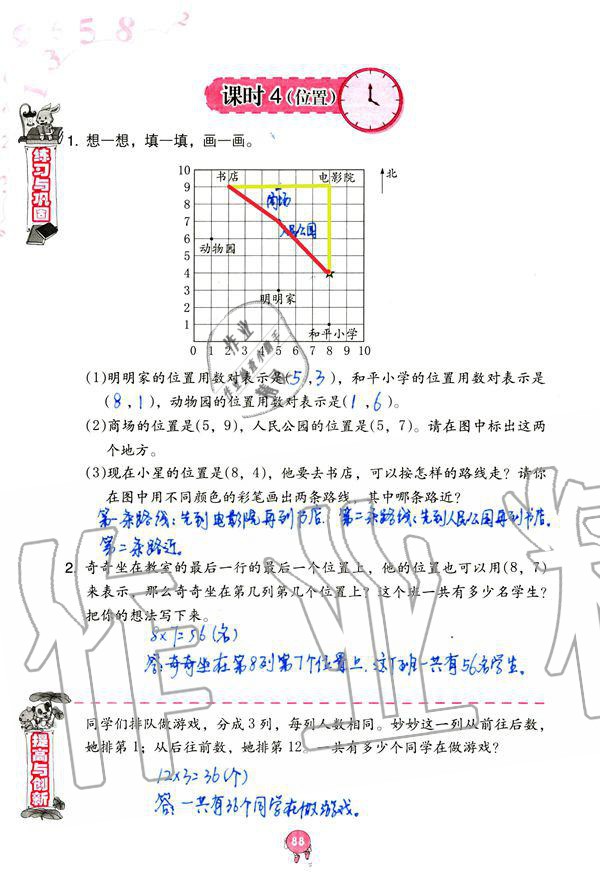 课时4(位置)
练习与巩固
1. 想一想，填一填，画一画。
10 书店 电影院 北
9
8 商场
7 人民公园
6
5 动物园
4
3
2 明明家
1 和平小学
0 1 2 3 4 5 6 7 8 9 10
(1)明明家的位置用数对表示是(5,3)，和平小学的位置用数对表示是
(8,1)，动物园的位置用数对表示是(1,6)。
(2)商场的位置是(5，9)，人民公园的位置是(5，7)。请在图中标出这两
个地方。
(3)现在小星的位置是(8，4)，他要去书店，可以按怎样的路线走？请你
在图中用不同颜色的彩笔画出两条路线，其中哪条路近？
第一条路线：先到电影院再到书店. 第二条路线：先到人民公园再到书店.
第二条路近。
2. 奇奇坐在教室的最后一行的最后一个位置上，他的位置也可以用(8，7)
来表示，那么奇奇坐在第几列第几个位置上？这个班一共有多少名学生？
把你的想法写下来。
8×7=56(名)
答：奇奇坐在第8列第7个位置上.这个班一共有56名学生。
提高与创新
同学们排队做游戏，分成3列，每列人数相同。妙妙这一列从前往后数，
她排第1；从后往前数，她排第12。一共有多少个同学在做游戏？
12×3=36(个)
答：一共有36个同学在做游戏。
88
作业